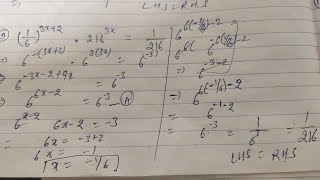 LHS = RHS
9) (1/6)^(3x+2) · 216^(3x) = 1/216
⇒ 6^(-(3x+2)) · 6^(3(3x)) = 6^(-3)
⇒ 6^(-3x-2+9x) = 6^(-3)
6^(6x-2) = 6^(-3) — (A)
6^(x-2)
6x-2 = -3
= 6x = -3+2
6x = -1
x = -1/6
6^(6(-1/6)-2)
⇒ 6^(6(-1/6)-2)
⇒ 6^(-1-2)
⇒ 6^(-3) = 1/6^3 = 1/216
LHS = RHS